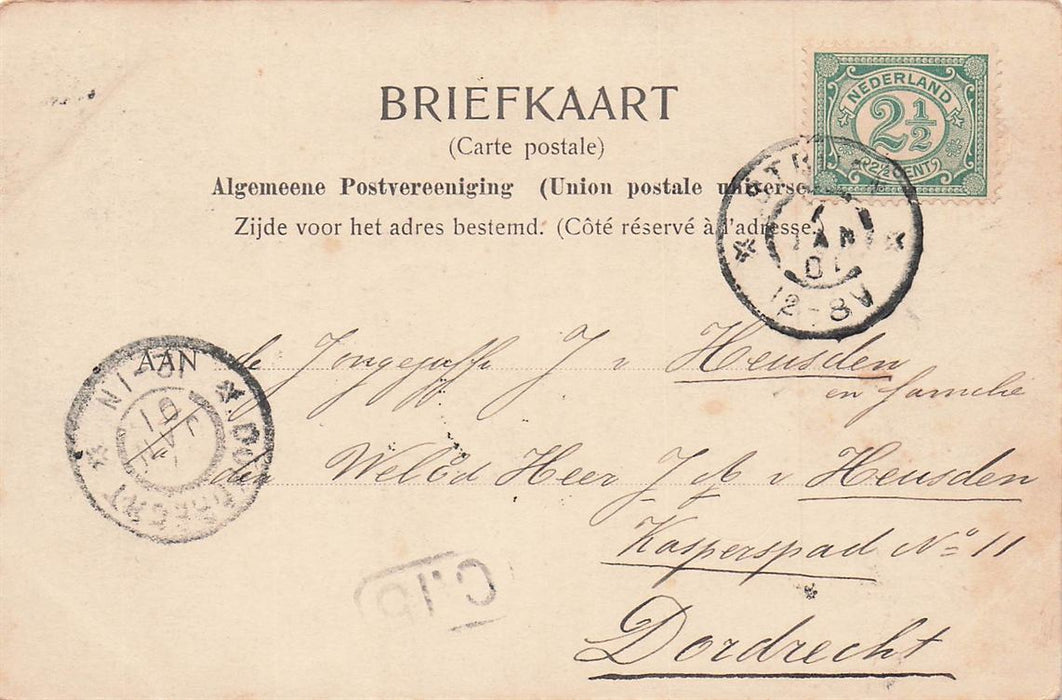 BRIEFKAART
(Carte postale)
Algemeene Postvereeniging (Union postale universe
Zijde voor het adres bestemd. (Côté réservé à l'adresse.)
NEDERLAND
2½
2½ CENT
JAN
01
12-8V
AAN de Jongejuffr J v Heusden
en familie
den Weled Heer J v Heusden
Kasperspad No 11
Dordrecht
DORDRECHT